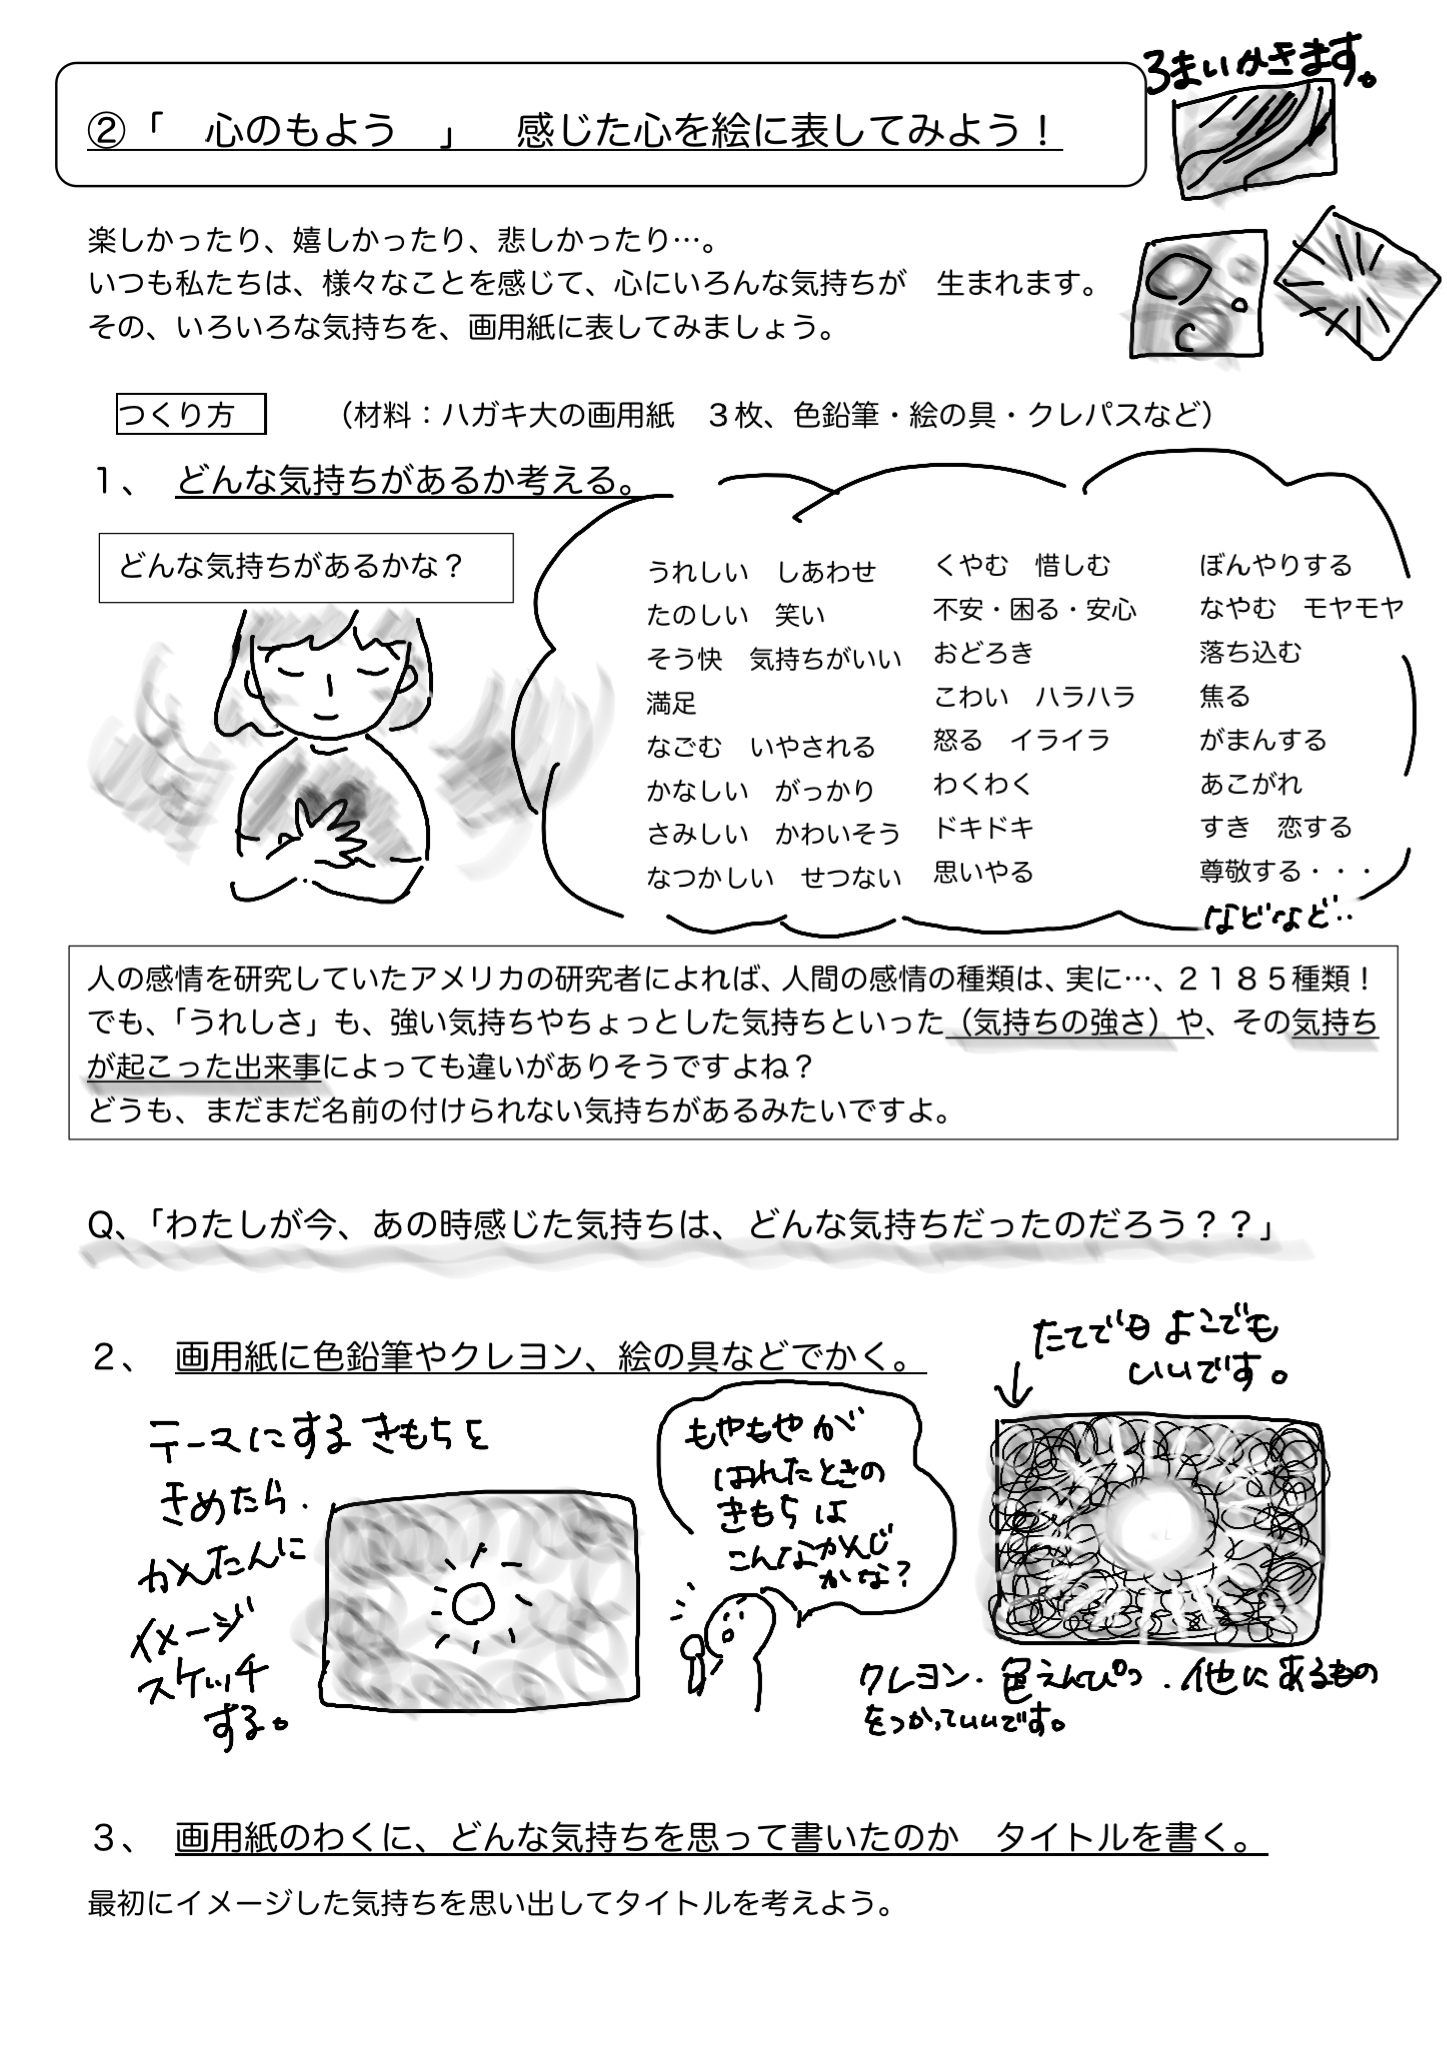 3まいかきます。
②「　心のもよう　」　感じた心を絵に表してみよう！
楽しかったり、嬉しかったり、悲しかったり…。
いつも私たちは、様々なことを感じて、心にいろんな気持ちが　生まれます。
その、いろいろな気持ちを、画用紙に表してみましょう。
つくり方　（材料：ハガキ大の画用紙　３枚、色鉛筆・絵の具・クレパスなど）
１、　どんな気持ちがあるか考える。
どんな気持ちがあるかな？
うれしい　しあわせ
たのしい　笑い
そう快　気持ちがいい
満足
なごむ　いやされる
かなしい　がっかり
さみしい　かわいそう
なつかしい　せつない
くやむ　惜しむ
不安・困る・安心
おどろき
こわい　ハラハラ
怒る　イライラ
わくわく
ドキドキ
思いやる
ぼんやりする
なやむ　モヤモヤ
落ち込む
焦る
がまんする
あこがれ
すき　恋する
尊敬する・・・
などなど‥
人の感情を研究していたアメリカの研究者によれば、人間の感情の種類は、実に…、２１８５種類！
でも、「うれしさ」も、強い気持ちやちょっとした気持ちといった（気持ちの強さ）や、その気持ち
が起こった出来事によっても違いがありそうですよね？
どうも、まだまだ名前の付けられない気持ちがあるみたいですよ。
Q、「わたしが今、あの時感じた気持ちは、どんな気持ちだったのだろう？？」
２、　画用紙に色鉛筆やクレヨン、絵の具などでかく。
たてでも よこでも
いいです。
テーマにする きもちを
きめたら.
かんたんに
イメージ
スケッチ
する。
もやもやが
はれたときの
きもちは
こんなかんじ
かな?
クレヨン. 色えんぴつ. 他にあるもの
をつかっていいです。
３、　画用紙のわくに、どんな気持ちを思って書いたのか　タイトルを書く。
最初にイメージした気持ちを思い出してタイトルを考えよう。